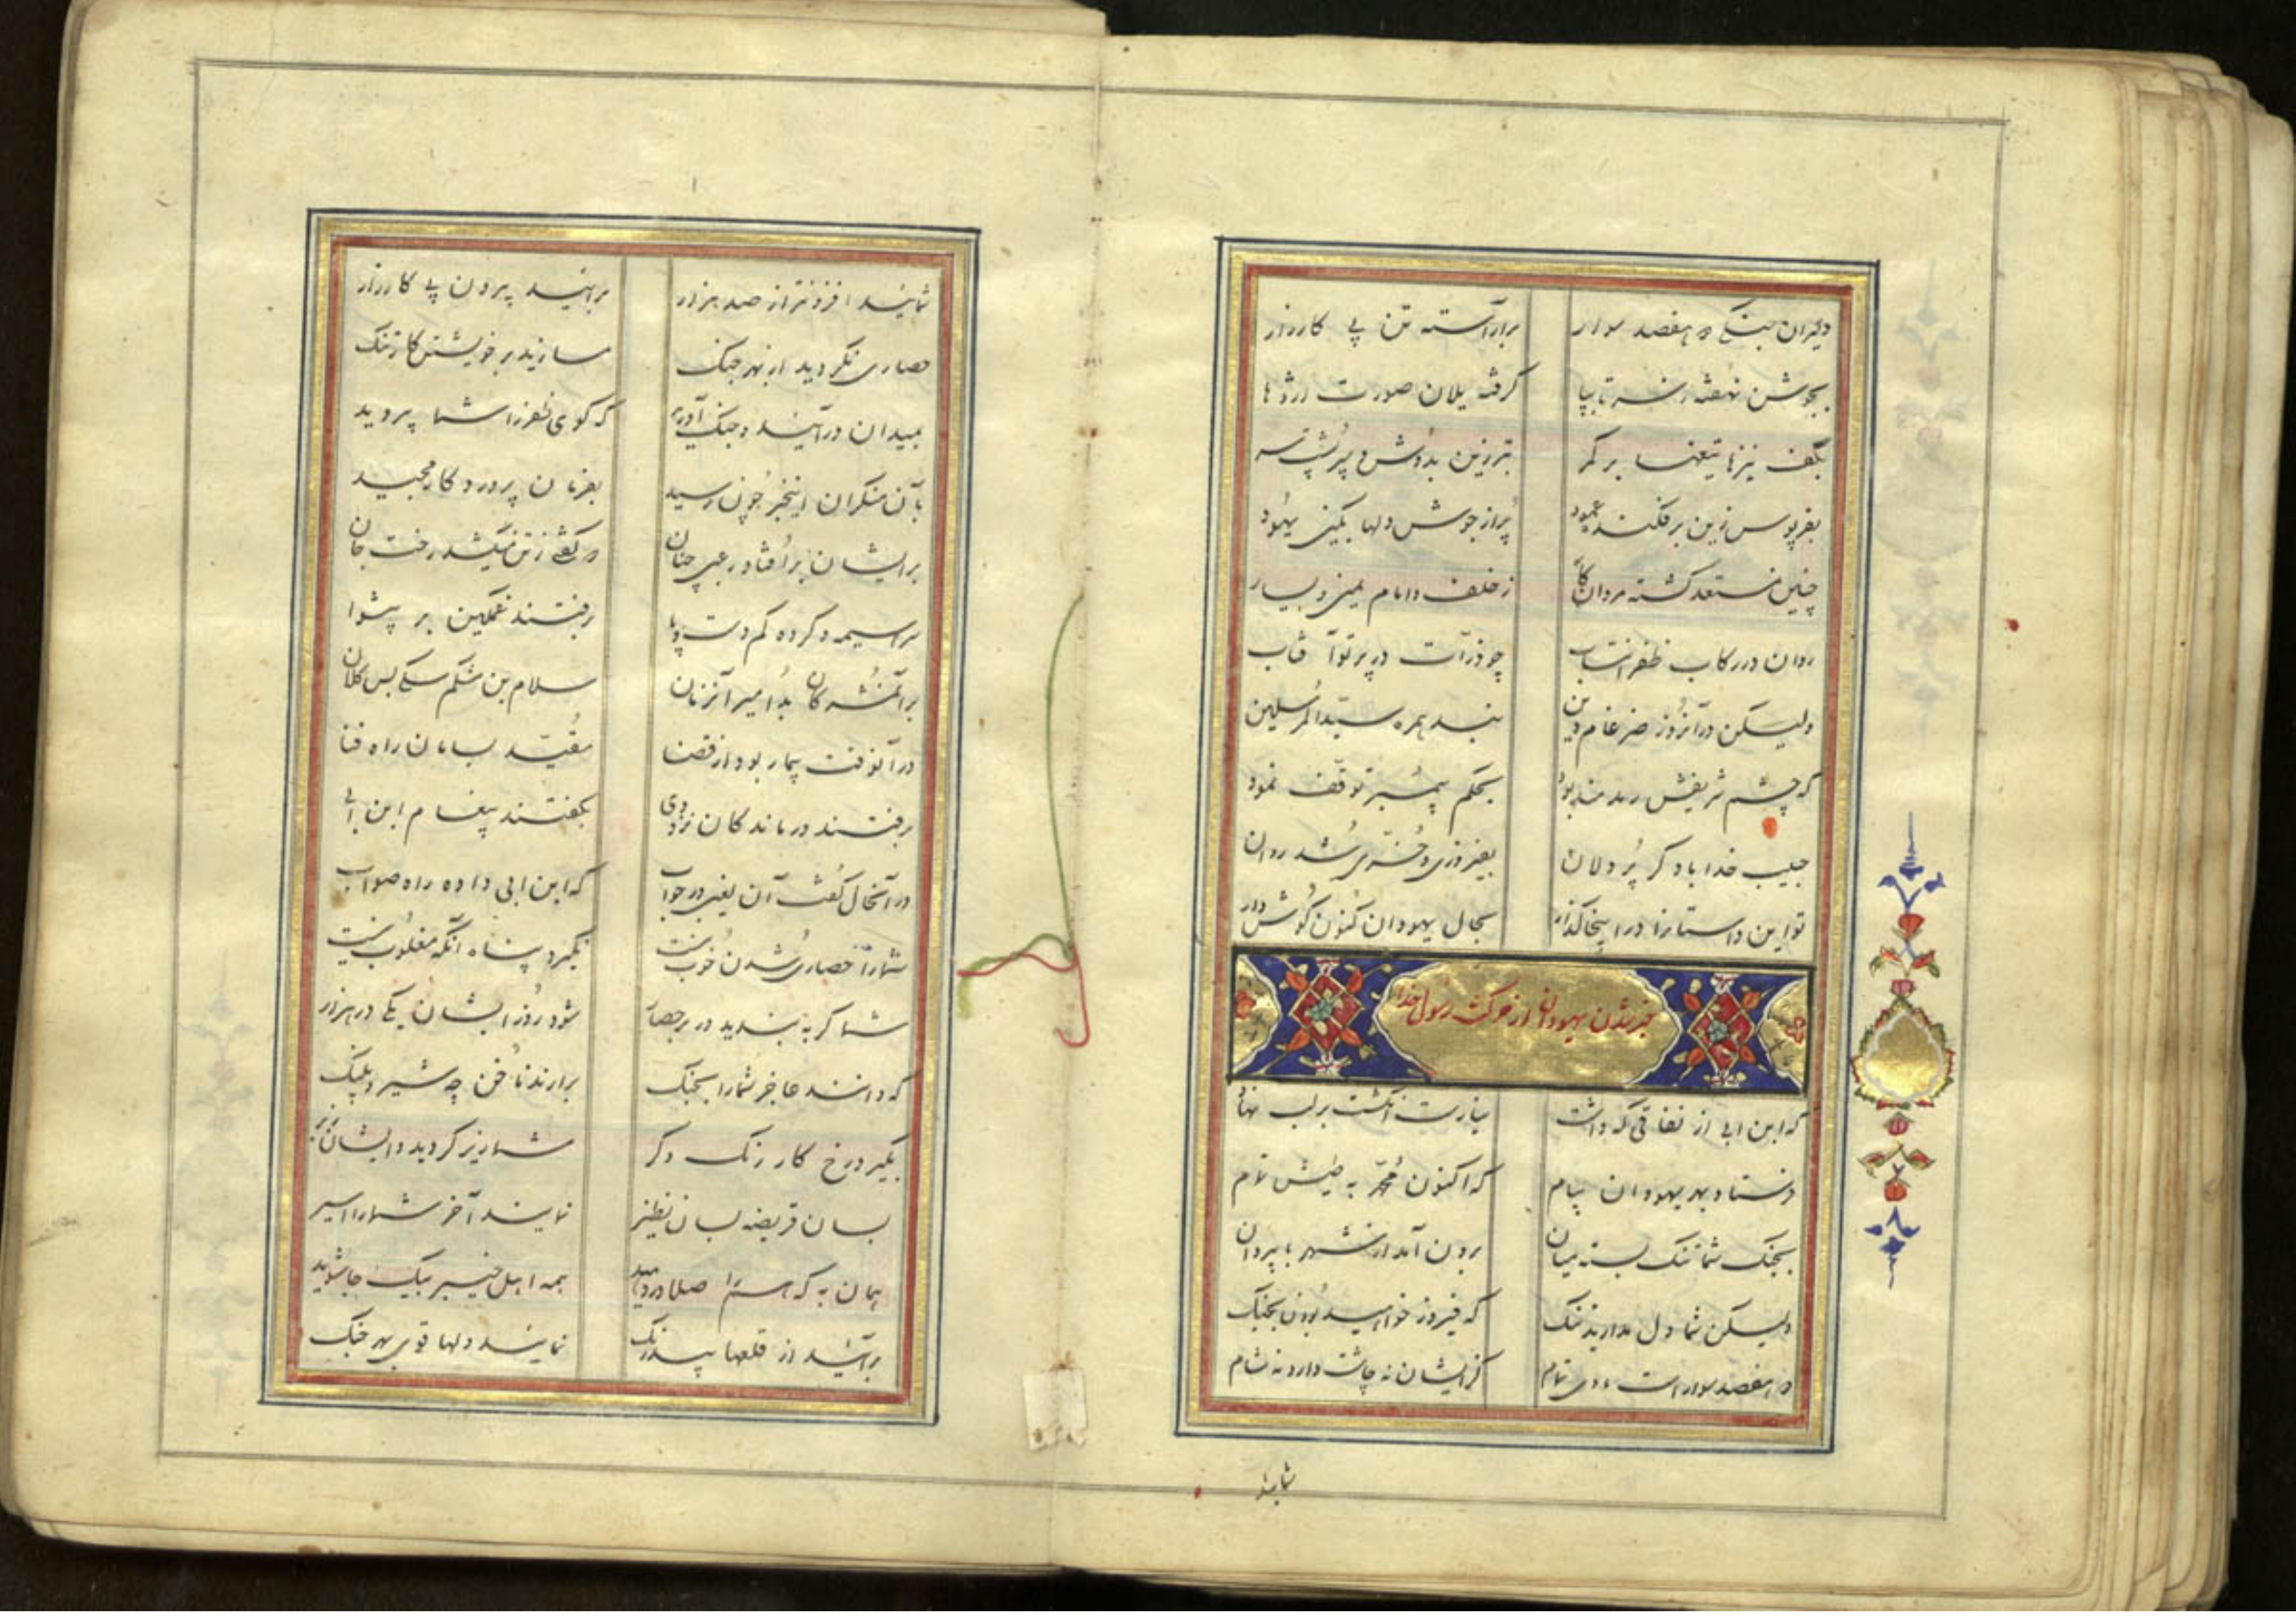 دلیران جنگی دو هفصد سوار برآراسته تن پی کارزار
بجوشن نهفته ز سر تا بپا گرفته یلان صورت اژدها
بکف نیزها تیغها بر کمر تبرزین بدوش و پس پشت سر
بقرپوس زین برفکنده عمود پر از جوش دلها بکین یهود
چنین مستعد گشته مردان کار ز خلف و امام یمین و یسار
روان در رکاب ظفر انتساب چو ذرات در پرتو آفتاب
ولیکن در آنروز ضرغام دین نبد همره سیدالمرسلین
که چشم شریفش رمدمند بود بحکم پیمبر توقف نمود
حبیب خدا با دگر پردلان بفیروزی و خرمی شد روان
تو این داستانرا در اینجا گذار بحال یهودان کنون گوش دار
خبر شدن یهودان از حرکت رسول خدا
که ابن ابی از نفاقی که داشت نیارست انگشت بر لب نهاد
فرستاد بهر یهودان پیام که اکنون محمد به طیش تمام
بجنگ شما تنگ بسته میان برون آمد از شهر با پیروان
ولیکن شما دل مدارید تنگ که فیروز خواهید بودن بجنگ
دو هفصد سوار است با وی تمام کزیشان نه چاشت دارد نه شام
شمایید
شمایید افزونتر از صد هزار برآیید بیرون پی کارزار
حصاری نگردید از بهر جنگ مسازید بر خویشتن کار تنگ
بمیدان درآیید و جنگ آورید که گوی ظفر را شما پی برید
بآن منکران اینخبر چون رسید بفرمان پروردگار مجید
بر ایشان برافتاد رعبی چنان که گفتی ز تن میکشد رخت جان
سراسیمه و کرده گم دست و پا برفتند غمگین بر پیشوا
بر آنمشرکان بد امیر آنزمان سلام بن مشکم سگی بس کلان
در آنوقت بیمار بود از قضا مقید بسامان راه فنا
برفتند درماندگان نزد وی بگفتند پیغام ابن ابی
در آنحال گفت آن لعین در جواب که ابن ابی داده راه صواب
شما را حصاری شدن خوب نیست نگیرد پناه آنکه مغلوب نیست
شما گر نباشید در برحصار شود روز ایشان یکی در هزار
که دانند عاجز شما را بجنگ برآرند ناخن چه شیر و پلنگ
بگیرد رخ کار رنگ دگر شما ریز گردید و ایشان زبر
بسان قریضه بسان نظیر نمایند آخر شما را اسیر
همان به که هم را صلا در دهید همه اهل خیبر بیک جا شوید
برآیید از قلعها بیدرنگ نمایید دلها قوی بهر جنگ